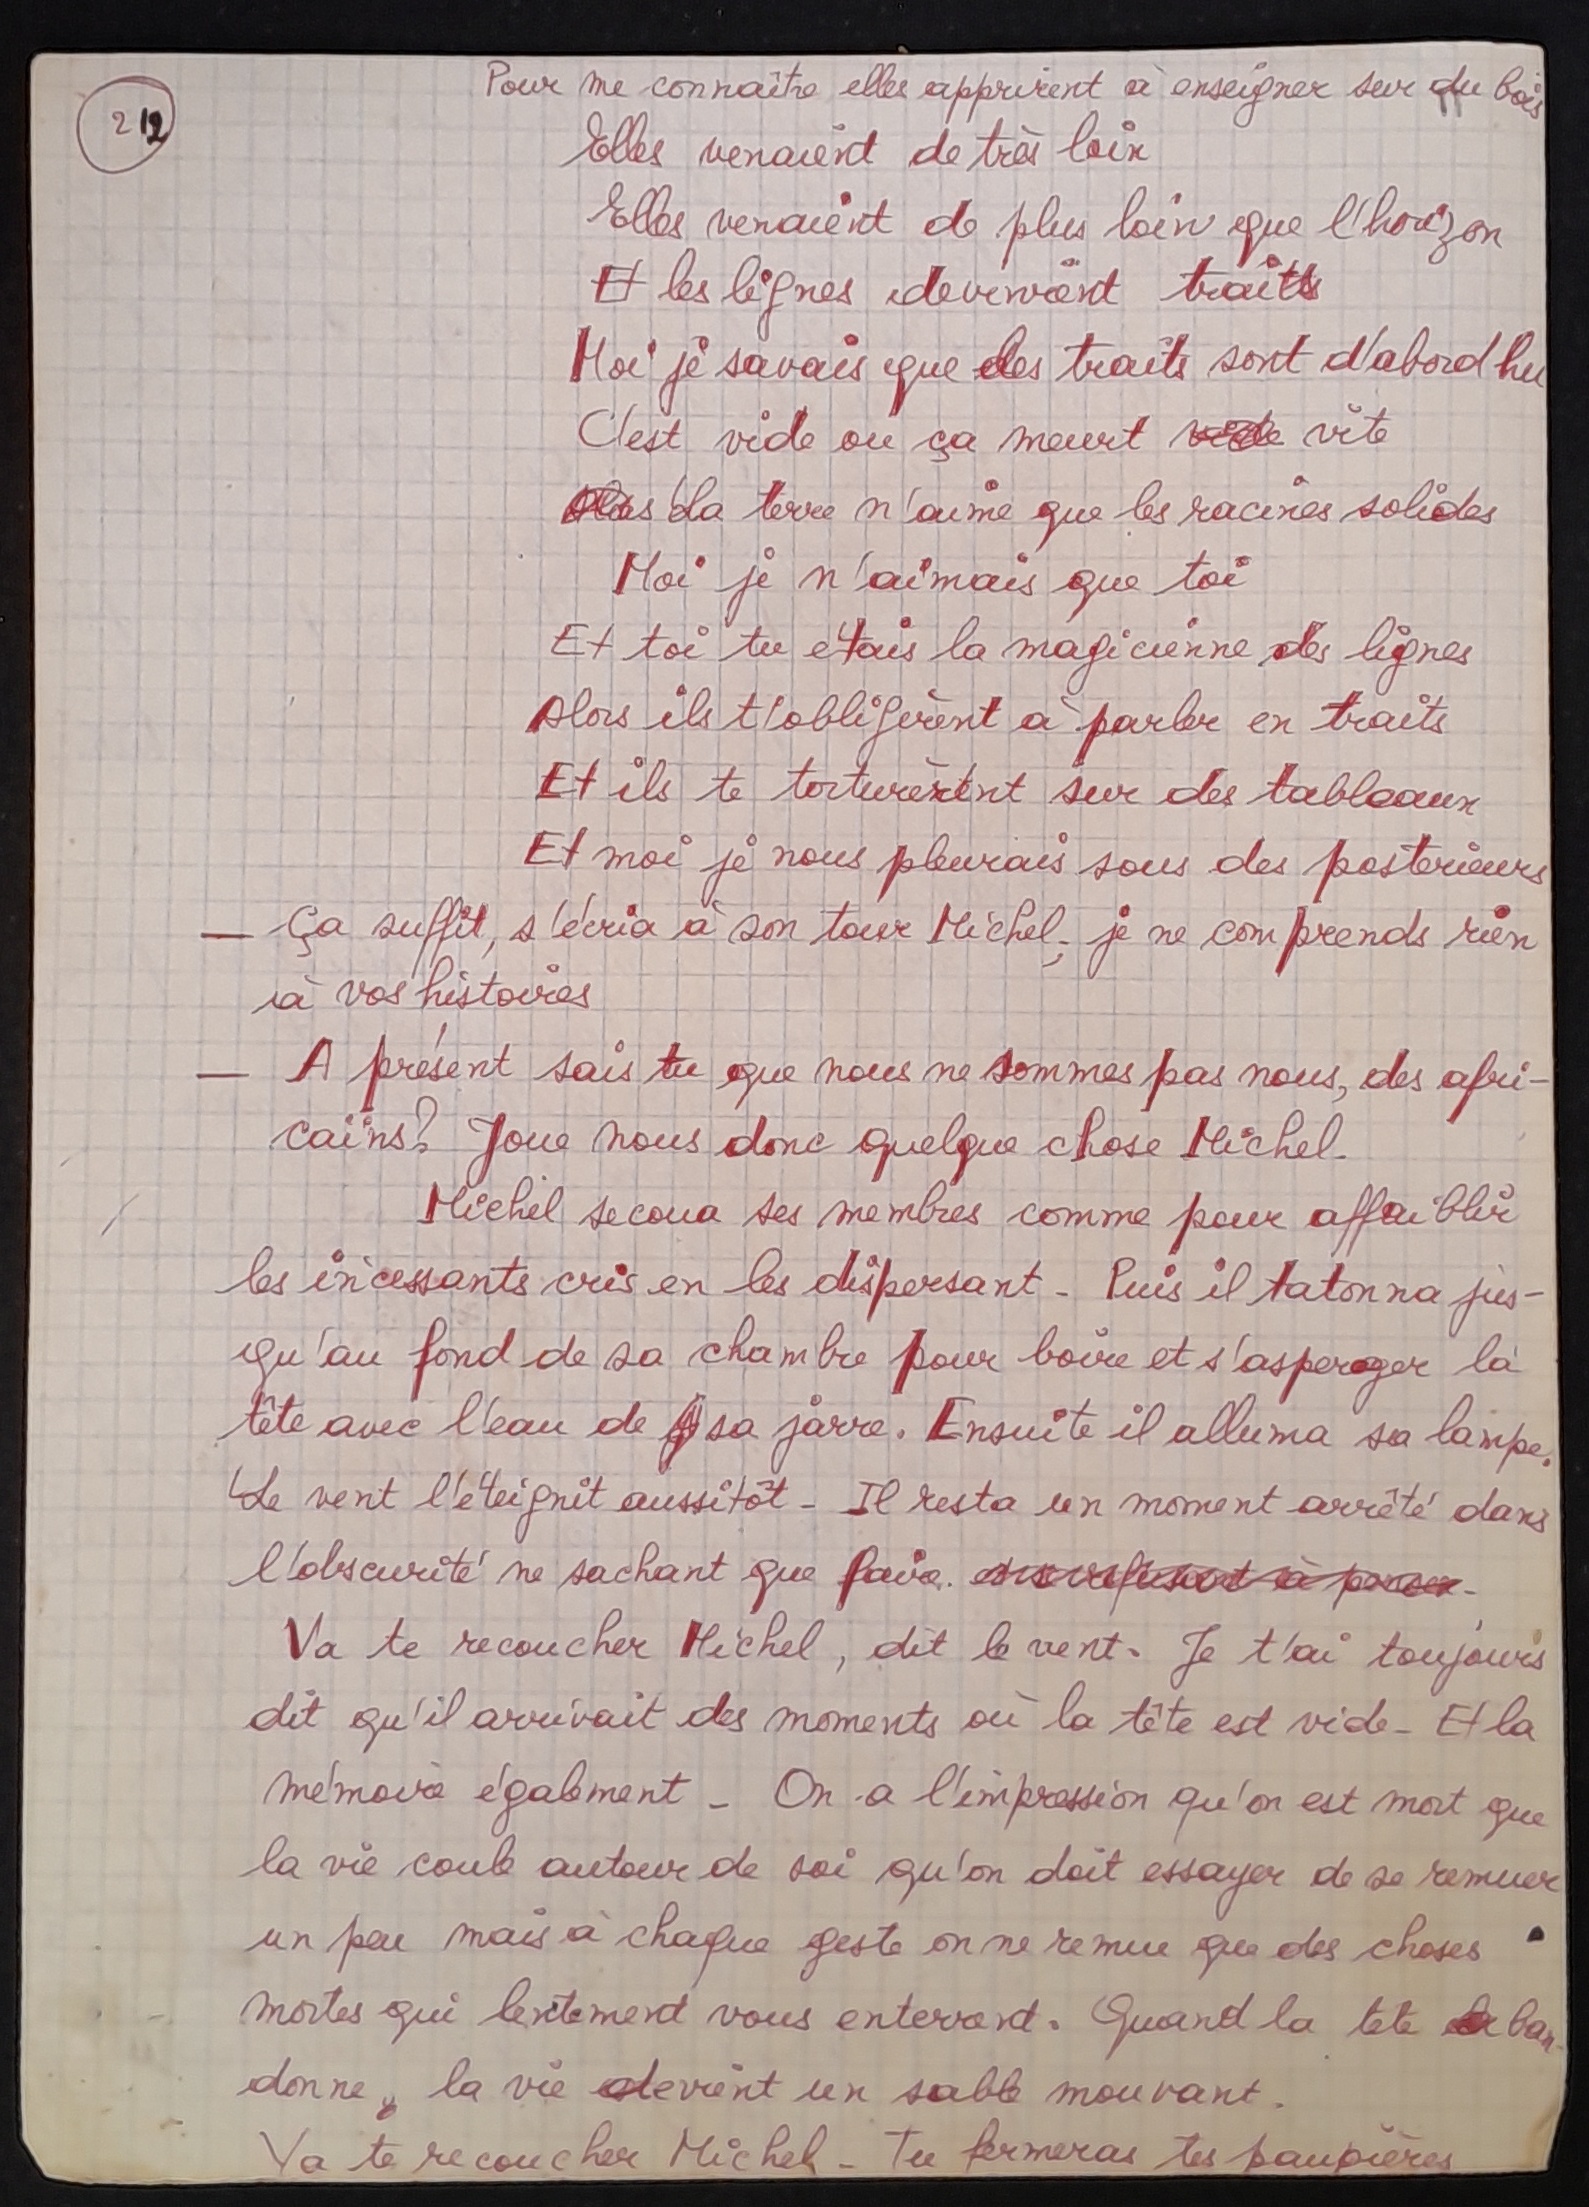 212
Pour me connaître elles apprirent à enseigner sur du bois
Elles venaient de très loin
Elles venaient de plus loin que l'horizon
Et les lignes devinrent traits
Moi je savais que les traits sont d'abord
C'est vide ou ça meurt vide vite
la terre n'aime que les racines solides
Moi je n'aimais que toi
Et toi tu étais la magicienne des lignes
Alors ils t'obligèrent à parler en traits
Et ils te torturèrent sur des tableaux
Et moi je nous pleurais sous des posterieurs
— Ça suffit, s'écria à son tour Michel, je ne comprends rien
à vos histoires
— A présent sais tu que nous ne sommes pas nous, des afri-
cains? Joue nous donc quelque chose Michel.
Michel secoua ses membres comme pour affaiblir
les incessants cris en les dispersant - Puis il tatonna jus-
qu'au fond de sa chambre pour boire et s'asperger la
tête avec l'eau de sa jarre. Ensuite il alluma sa lampe.
Le vent l'éteignit aussitôt - Il resta un moment arrêté dans
l'obscurité ne sachant que faire.
Va te recoucher Michel, dit le vent. Je t'ai toujours
dit qu'il arrivait des moments où la tête est vide - Et la
mémoire également - On a l'impression qu'on est mort que
la vie coule autour de soi qu'on doit essayer de se remuer
un peu mais à chaque geste on ne remue que des choses
mortes qui lentement vous enterrent. Quand la tete aban-
donne, la vie devient un sable mouvant.
Va te recoucher Michel - Tu fermeras tes paupières